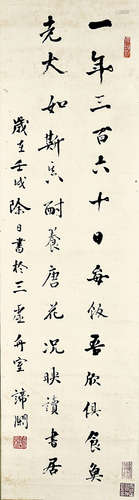 一年三百六十日每飯吾欣俱食魚
老大如斯真耐養唐花況映讀書居
歲在壬戌除日書於三虛舟室 諦閑